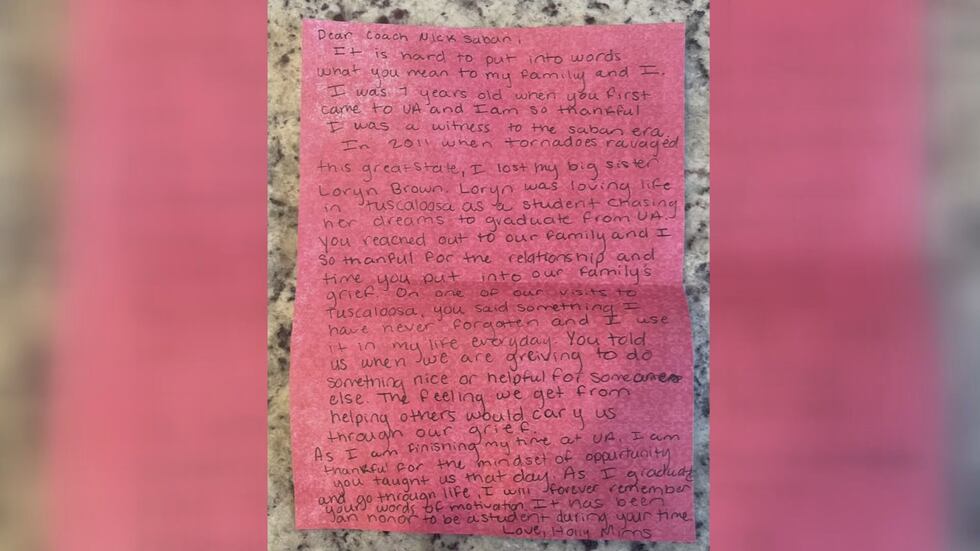 Dear Coach Nick Saban,
It is hard to put into words
what you mean to my family and I.
I was 7 years old when you first
came to UA and I am so thankful
I was a witness to the saban era.
In 2011 when tornadoes ravaged
this great state, I lost my big sister
Loryn Brown. Loryn was loving life
in Tuscaloosa as a student chasing
her dreams to graduate from UA.
You reached out to our family and I
so thanful for the relationship and
time you put into our family's
grief. On one of our visits to
Tuscaloosa, you said something I
have never forgotten and I use
it in my life everyday. You told
us when we are greiving to do
something nice or helpful for someone
else. The feeling we get from
helping others would cary us
through our grief.
As I am finishing my time at UA, I am
thankful for the mindset of opportunity
you taught us that day. As I graduate
and go through life, I will forever remember
your words of motivation. It has been
an honor to be a student during your time.
Love, Holly Mims